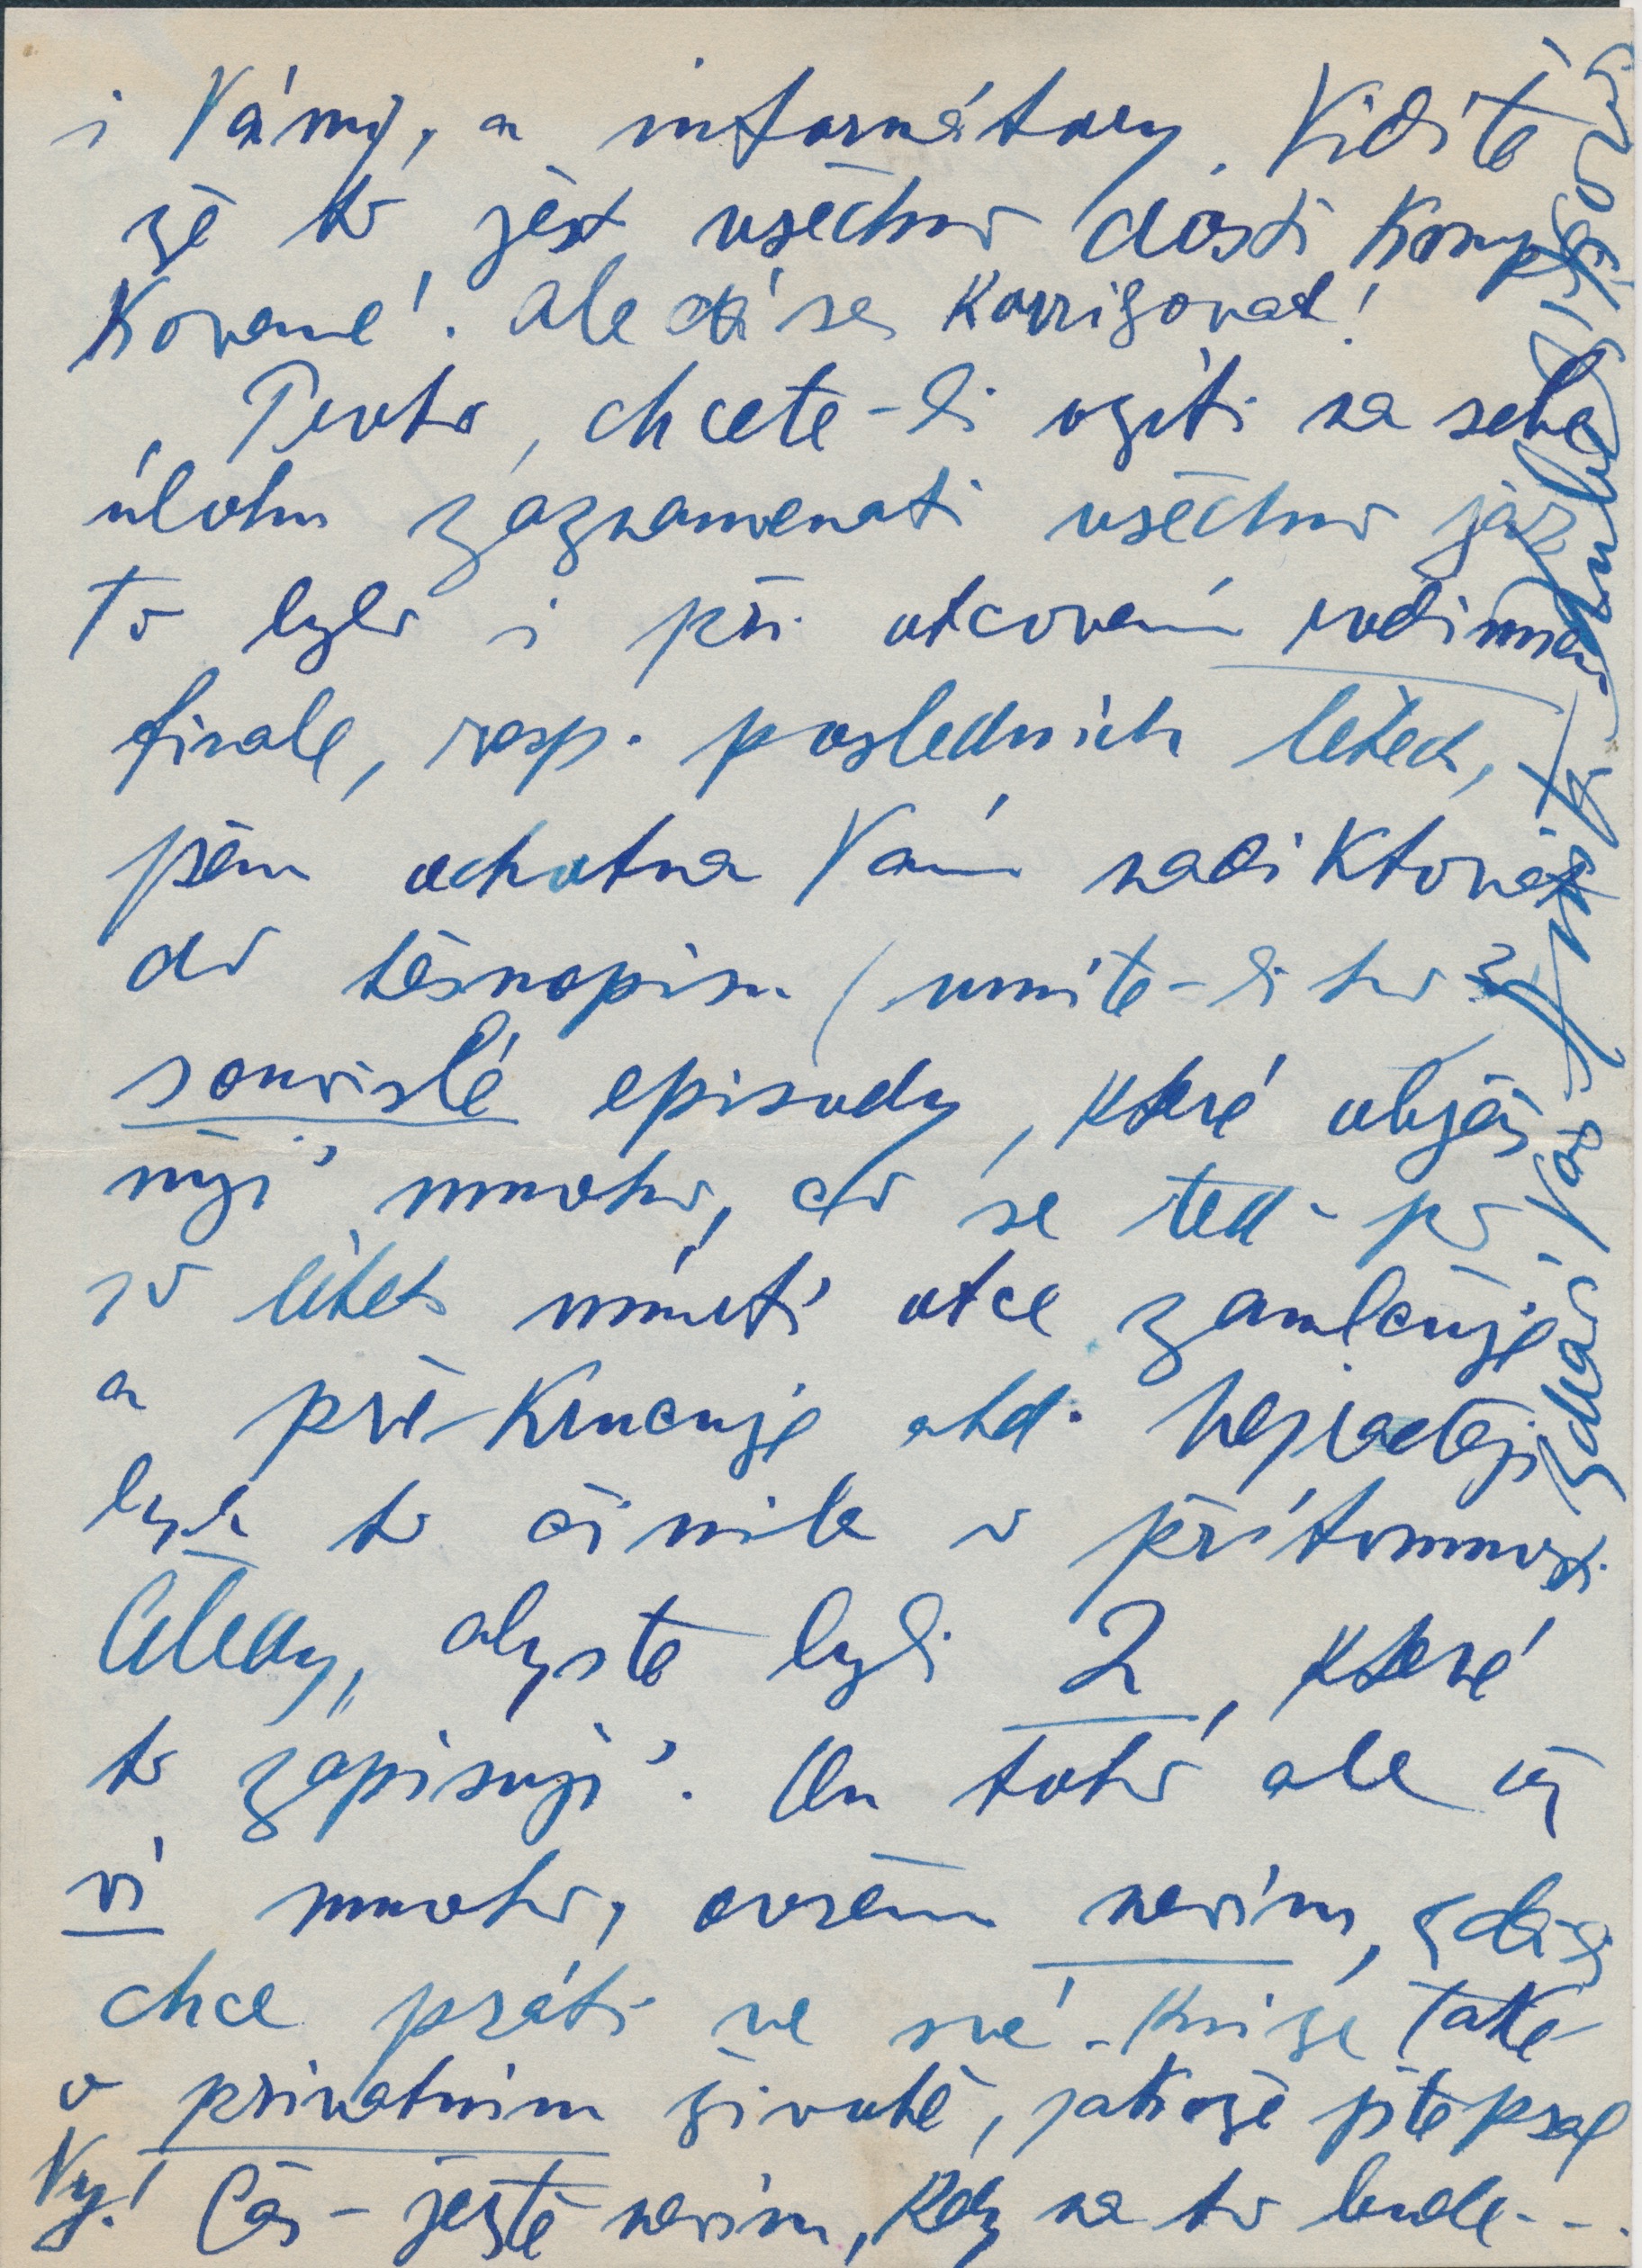 i Vámi, a informátory. Vidíte
že to jest všechno dosti kompli
kované! Ale dá se korrigovat!
Proto, chcete-li vzíti na sebe
úlohu zaznamenati všechno jak
to bylo i při otcovém rodinném
finale, resp. posledních letech,
jsem ochotna Vám nadiktovat
do těsnopisu (umíte-li to?)
souvislé episody, které objas
ňují mnoho, co se teď - po
10 letech úmrtí otce zamlčuje
a překrucuje atd. Nejraději
bych to činila v přítomnosti
abyste byli 2, které
to zapisují. On toho ale
ví mnoho, ovšem nevím, zda-li
chce psáti ve své knize také
o privatním životě, jakože jste psal
Vy! Čas - ještě nevím, kdy na to bude - -.
Zdraví Vás